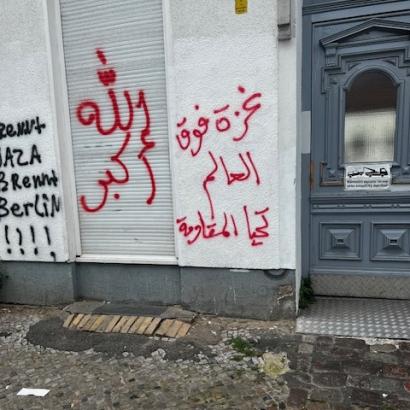 Brennt
GAZA
BRennt
Berlin
!!!!
الله
أكبر
غزة فوق
العالم
تحيا المقاومة